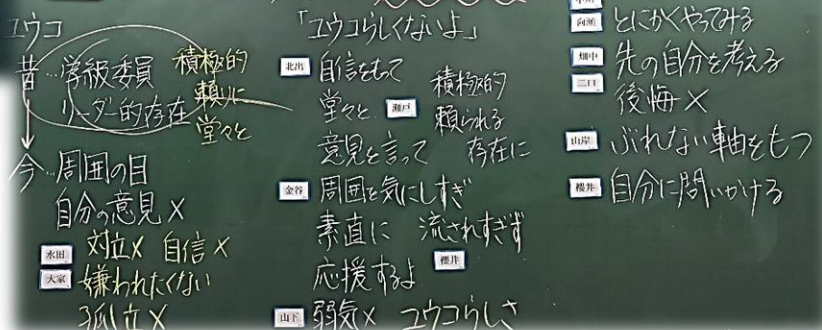 ユウコ
昔…学級委員 積極的
リーダー的存在 頼りに
堂々と
今…周囲の目
自分の意見 ×
水田 対立× 自信×
大家 嫌われたくない
孤立×
「ユウコらしくないよ」
北出 自信をもって
堂々と 瀬戸 積極的
頼られる
意見を言って 存在に
金谷 周囲を気にしすぎ
素直に 流されすぎず
応援するよ 櫻井
山下 弱気× ユウコらしさ
向瀬 とにかくやってみる
畑中 先の自分を考える
二口 後悔×
山岸 ぶれない軸をもつ
櫻井 自分に問いかける